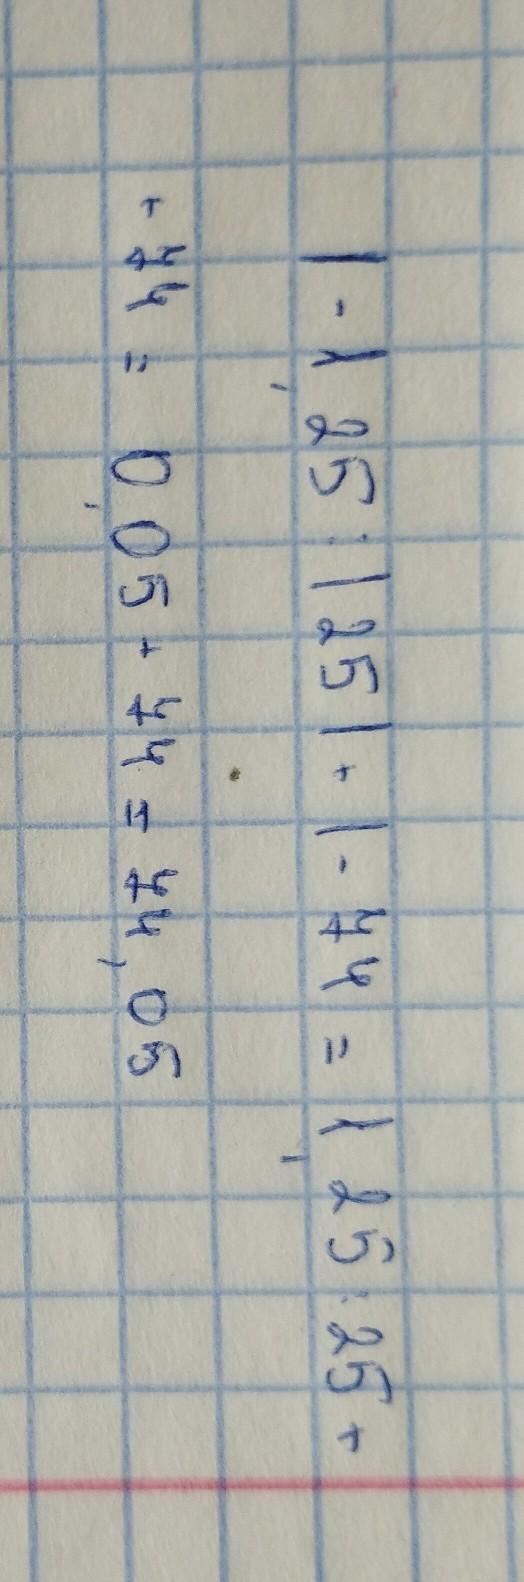 |-1,25:|25|+|-44=1,25:25+
+44=0,05+44=44,05